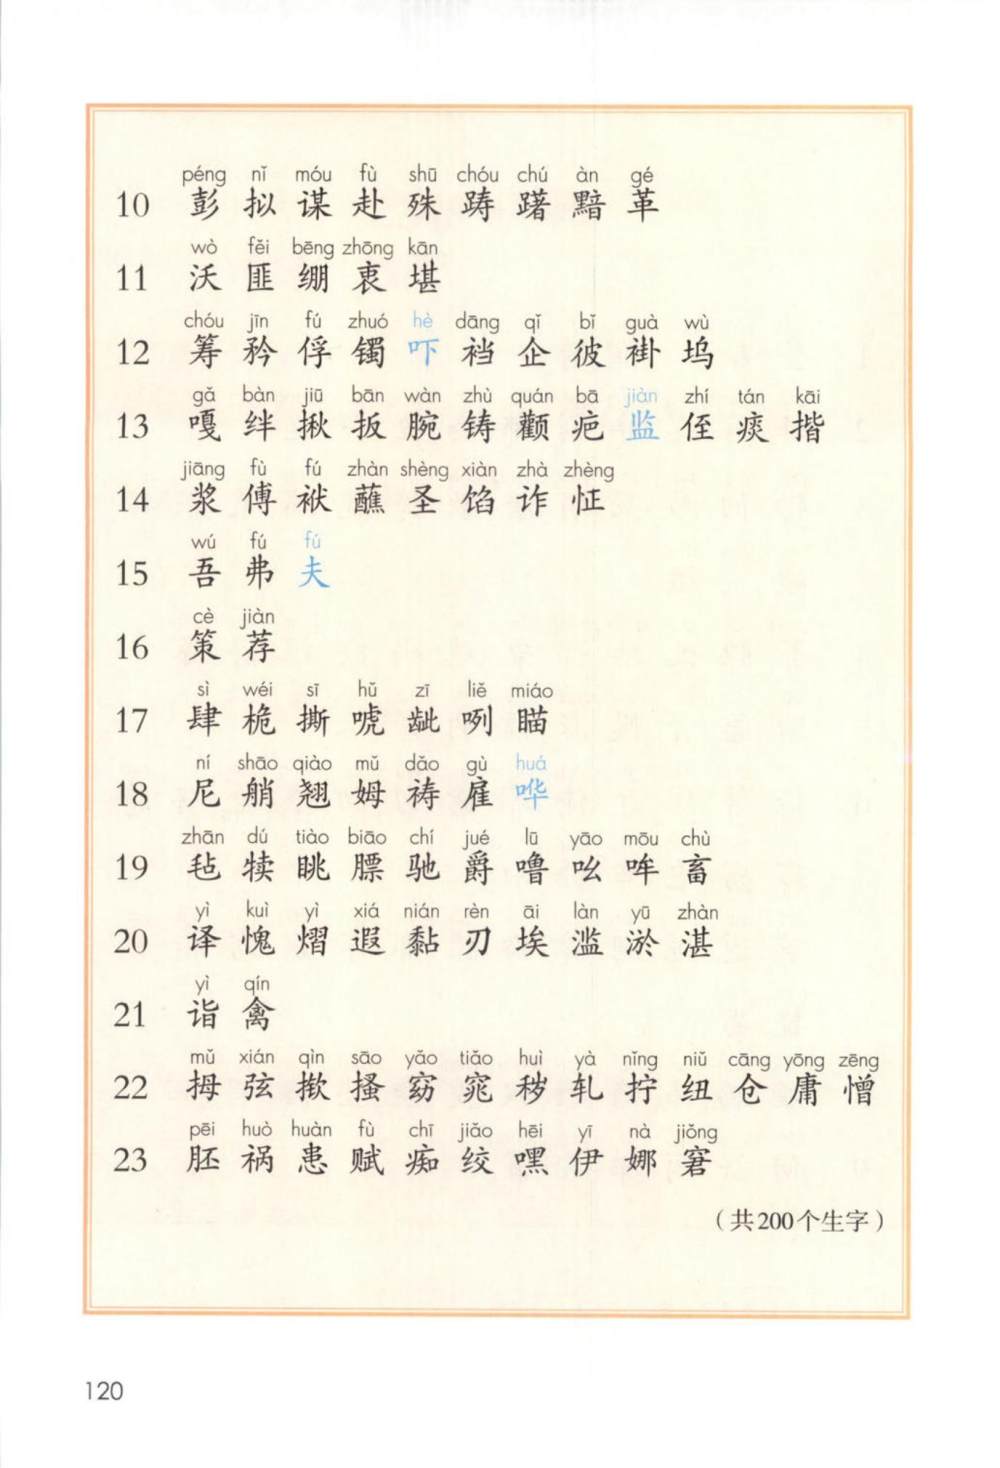 péng nǐ móu fù shū chóu chú àn gé
10 彭 拟 谋 赴 殊 踌 躇 黯 革
wò fěi bēng zhōng kān
11 沃 匪 绷 衷 堪
chóu jīn fú zhuó hè dāng qǐ bǐ guà wù
12 筹 矜 俘 镯 吓 裆 企 彼 褂 坞
gǎ bàn jiū bān wàn zhù quán bā jiàn zhí tán kāi
13 嘎 绊 揪 扳 腕 铸 颧 疤 监 侄 痰 揩
jiāng fù fú zhàn shèng xiàn zhà zhèng
14 浆 傅 袱 蘸 圣 馅 诈 怔
wú fú fú
15 吾 弗 夫
cè jiàn
16 策 荐
sì wéi sī hǔ zī liě miáo
17 肆 桅 撕 唬 龇 咧 瞄
ní shāo qiào mǔ dǎo gù huá
18 尼 艄 翘 姆 祷 雇 哗
zhān dú tiào biāo chí jué lū yāo mōu chù
19 毡 犊 眺 膘 驰 爵 噜 吆 哞 畜
yì kuì yì xiá nián rèn āi làn yū zhàn
20 译 愧 熠 遐 黏 刃 埃 滥 淤 湛
yì qín
21 诣 禽
mǔ xián qìn sāo yǎo tiǎo huì yà nǐng niǔ cāng yōng zēng
22 拇 弦 揿 搔 窈 窕 秽 轧 拧 纽 仓 庸 憎
pēi huò huàn fù chī jiǎo hēi yī nà jiǒng
23 胚 祸 患 赋 痴 绞 嘿 伊 娜 窘
（共200个生字）
120